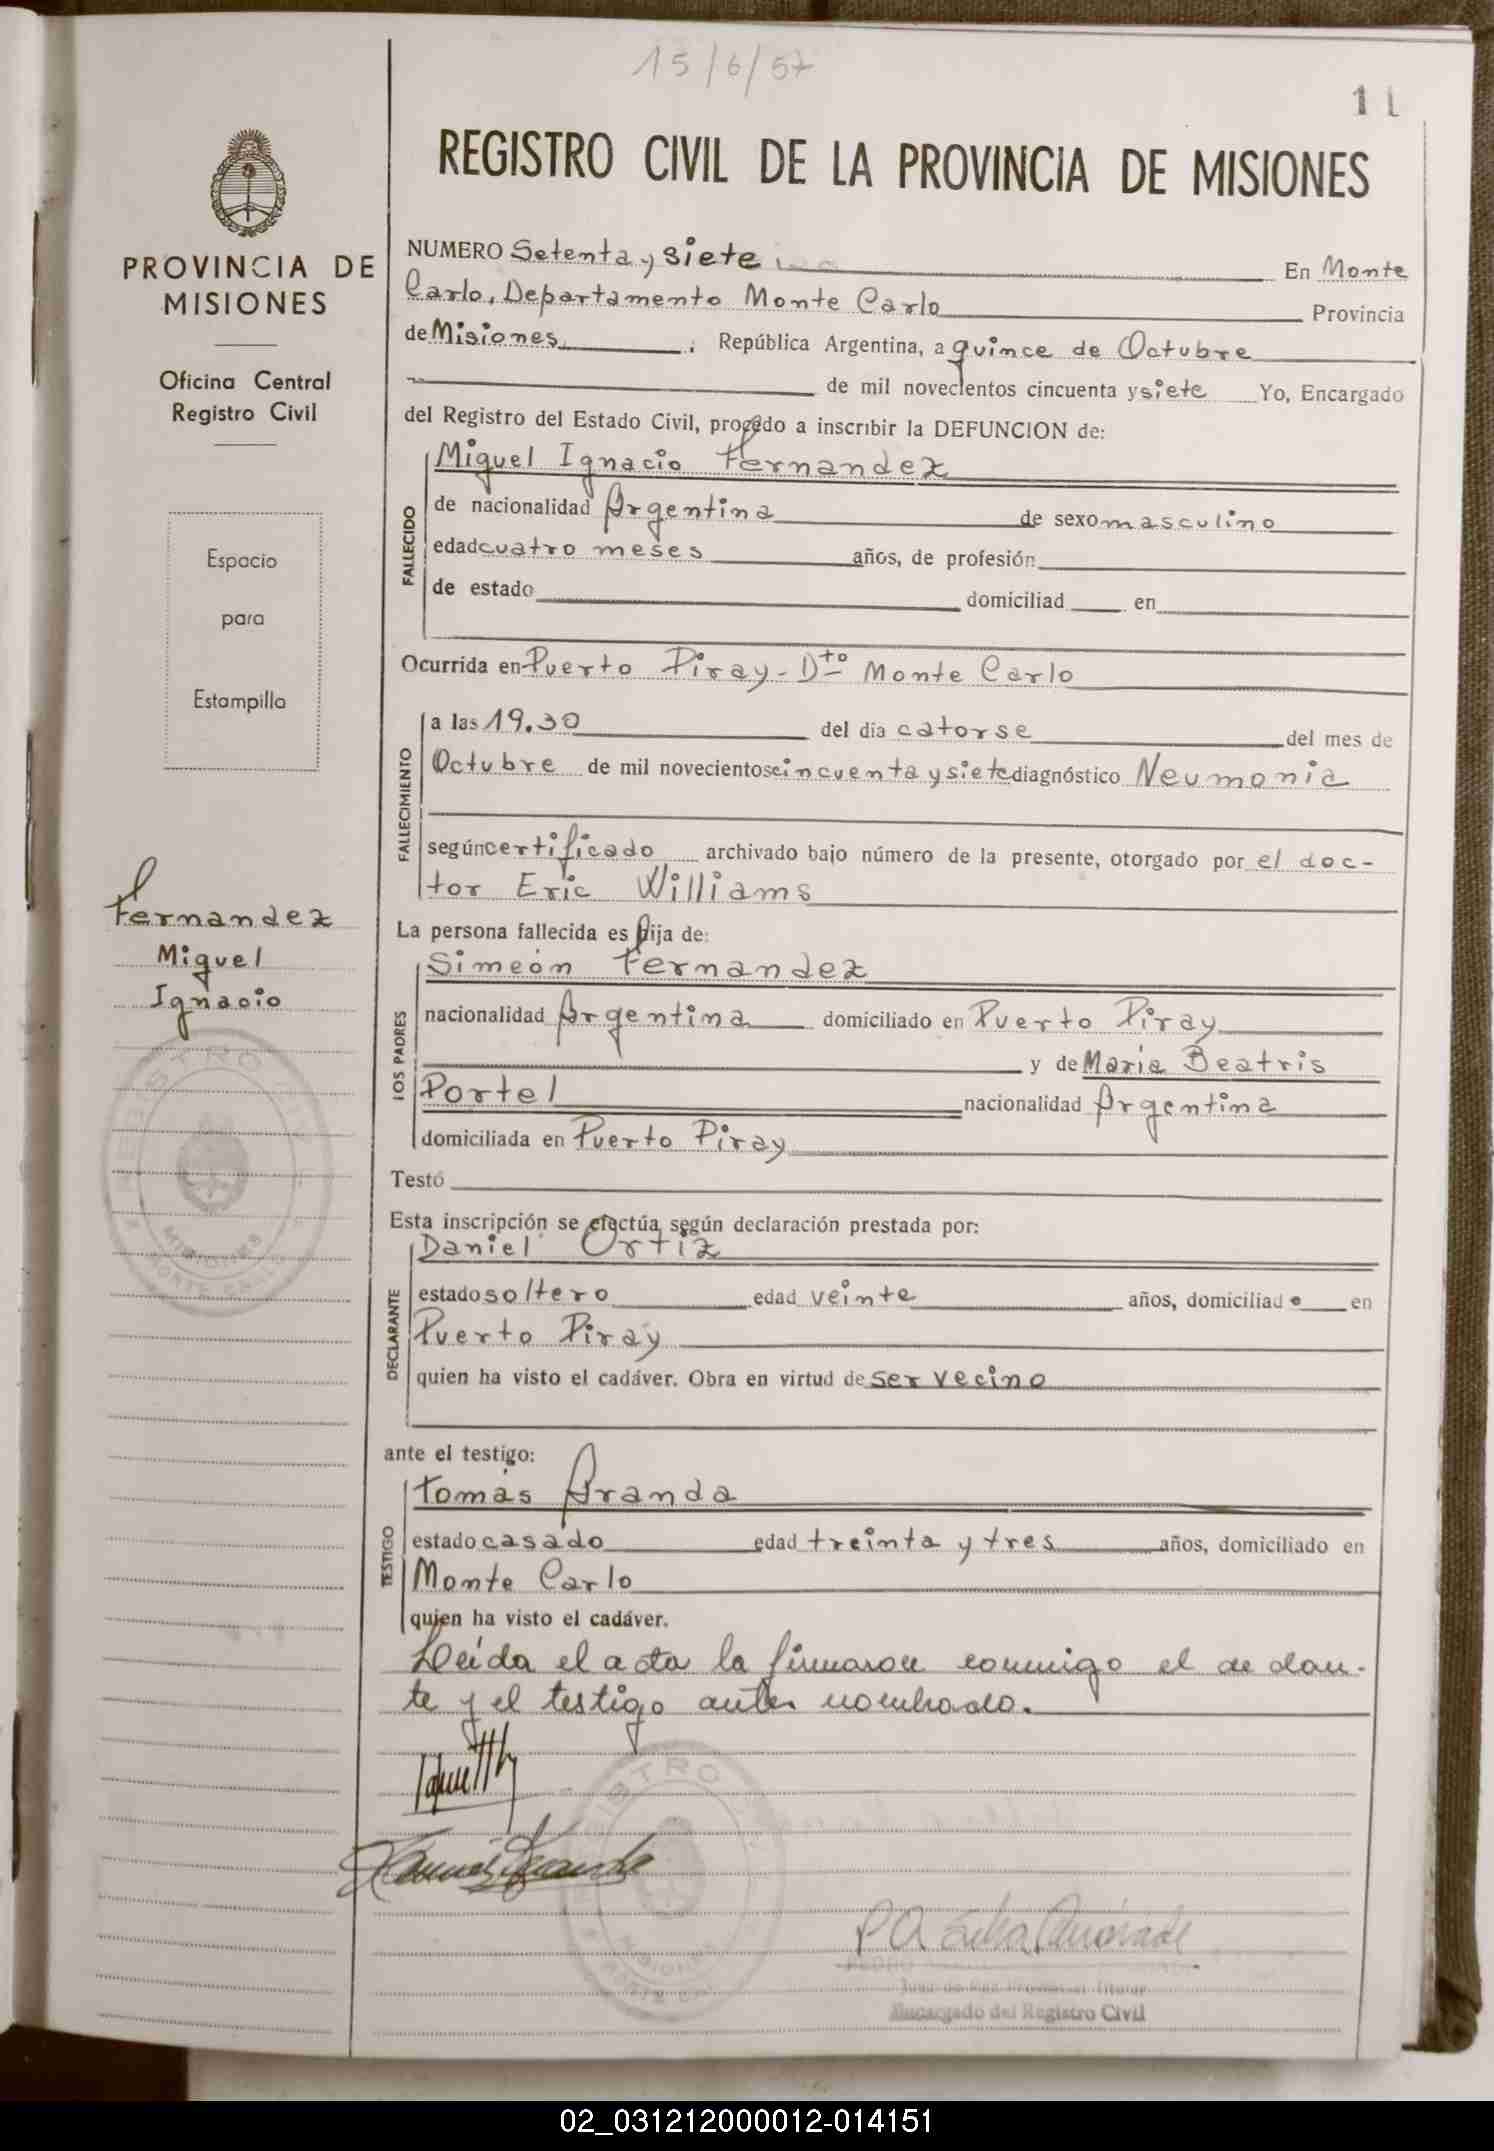 15/6/57
11
REGISTRO CIVIL DE LA PROVINCIA DE MISIONES
PROVINCIA DE
MISIONES
Oficina Central
Registro Civil
Espacio
para
Estampilla
Fernandez
Miguel
Ignacio
REGISTRO CIVIL
MISIONES
MONTE CARLO
NUMERO Setenta y siete En Monte
Carlo, Departamento Monte Carlo Provincia
de Misiones República Argentina, a quince de Octubre
de mil novecientos cincuenta y siete Yo, Encargado
del Registro del Estado Civil, procedo a inscribir la DEFUNCION de:
FALLECIDO
Miguel Ignacio Fernandez
de nacionalidad Argentina de sexo masculino
edad cuatro meses años, de profesión
de estado domiciliad en
Ocurrida en Puerto Piray - Dto Monte Carlo
FALLECIMIENTO
a las 19.30 del dia catorse del mes de
Octubre de mil novecientos cincuenta y siete diagnóstico Neumonia
según certificado archivado bajo número de la presente, otorgado por el doc-
tor Eric Williams
La persona fallecida es hija de:
LOS PADRES
Simeón Fernandez
nacionalidad Argentina domiciliado en Puerto Piray
y de Maria Beatris
Portel nacionalidad Argentina
domiciliada en Puerto Piray
Testó
Esta inscripción se efectúa según declaración prestada por:
DECLARANTE
Daniel Ortiz
estado soltero edad veinte años, domiciliado en
Puerto Piray
quien ha visto el cadáver. Obra en virtud de ser vecino
ante el testigo:
TESTIGO
Tomás Aranda
estado casado edad treinta y tres años, domiciliado en
Monte Carlo
quien ha visto el cadáver.
Leída el acta la firmaron conmigo el declaran-
te y el testigo antes nombrado.
REGISTRO
MISIONES
MONTE CARLO
Encargado del Registro Civil
02_031212000012-014151